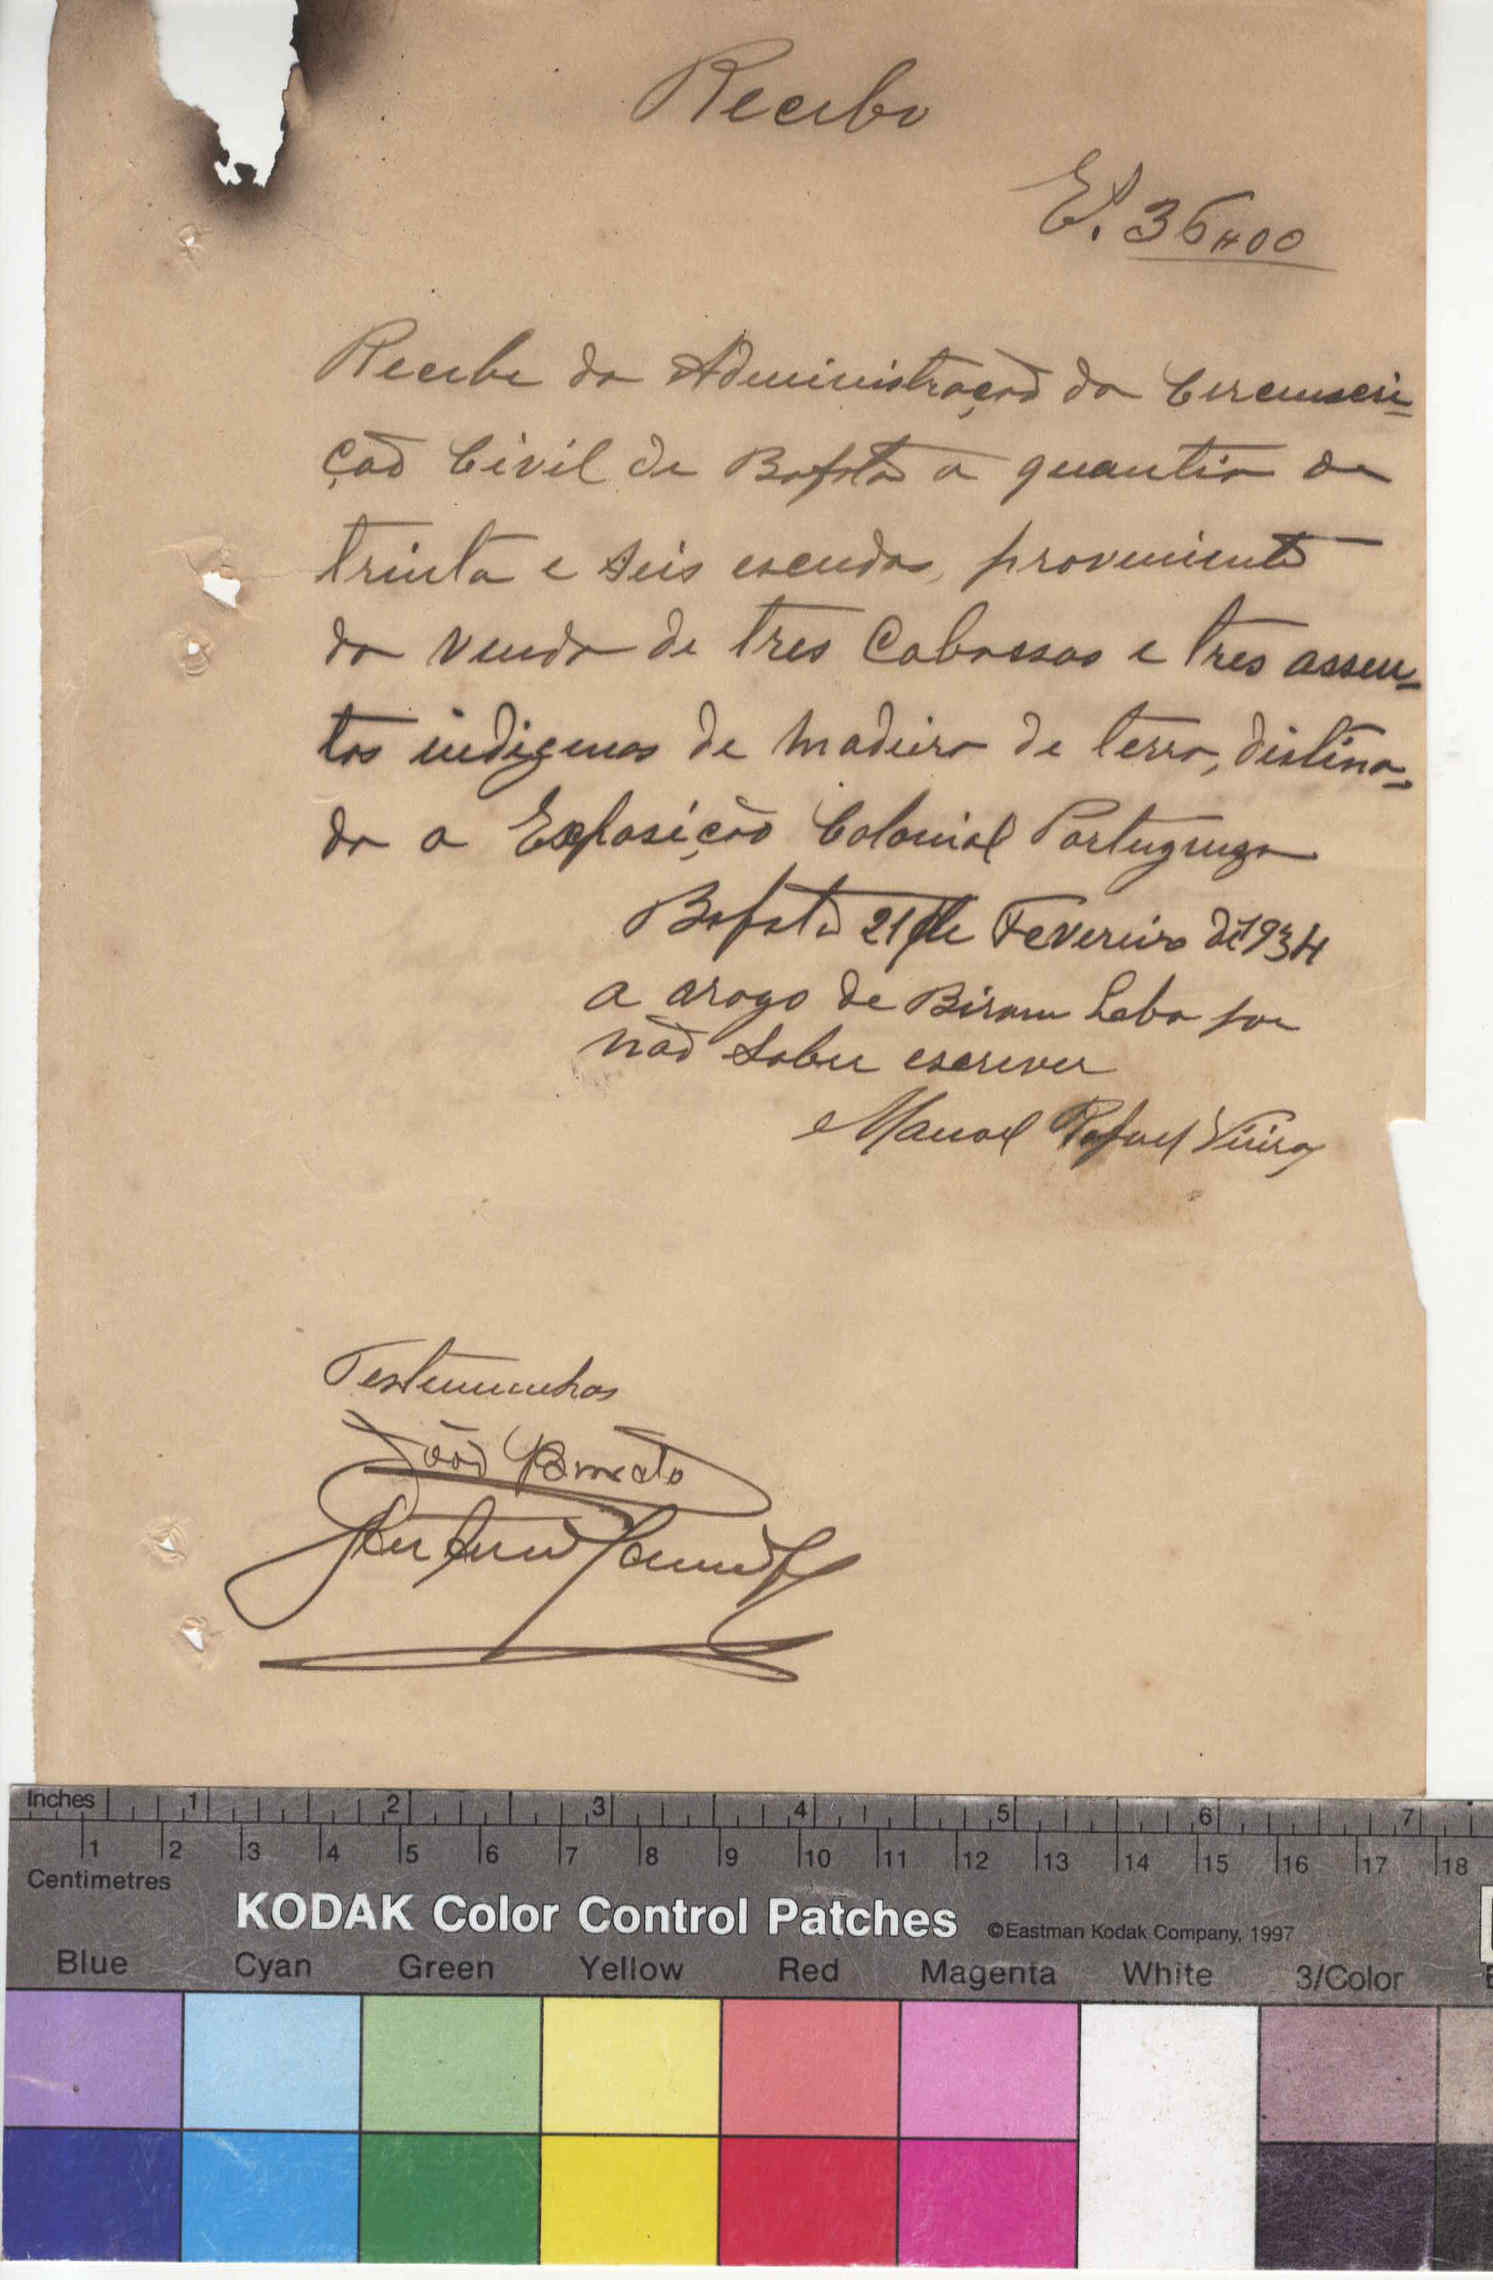 Recibo
E. 36$00
Recebe da Administração da Circunscri-
ção Civil de Bafatá a quantia de
trinta e seis escudos, proveniente
da venda de tres Cabassas e tres assen-
tos indigenas de madeira de terra, distina-
da a Exposição Colonial Portugueza
Bafatá 21 de Fevereiro de 1934
a arogo de Biram Leba por
não saber escrever
Manoel Rafael Vieira
Testemunhas
João
Inches 1 2 3 4 5 6 7
1 2 3 4 5 6 7 8 9 10 11 12 13 14 15 16 17 18
Centimetres
KODAK Color Control Patches ©Eastman Kodak Company, 1997
Blue Cyan Green Yellow Red Magenta White 3/Color